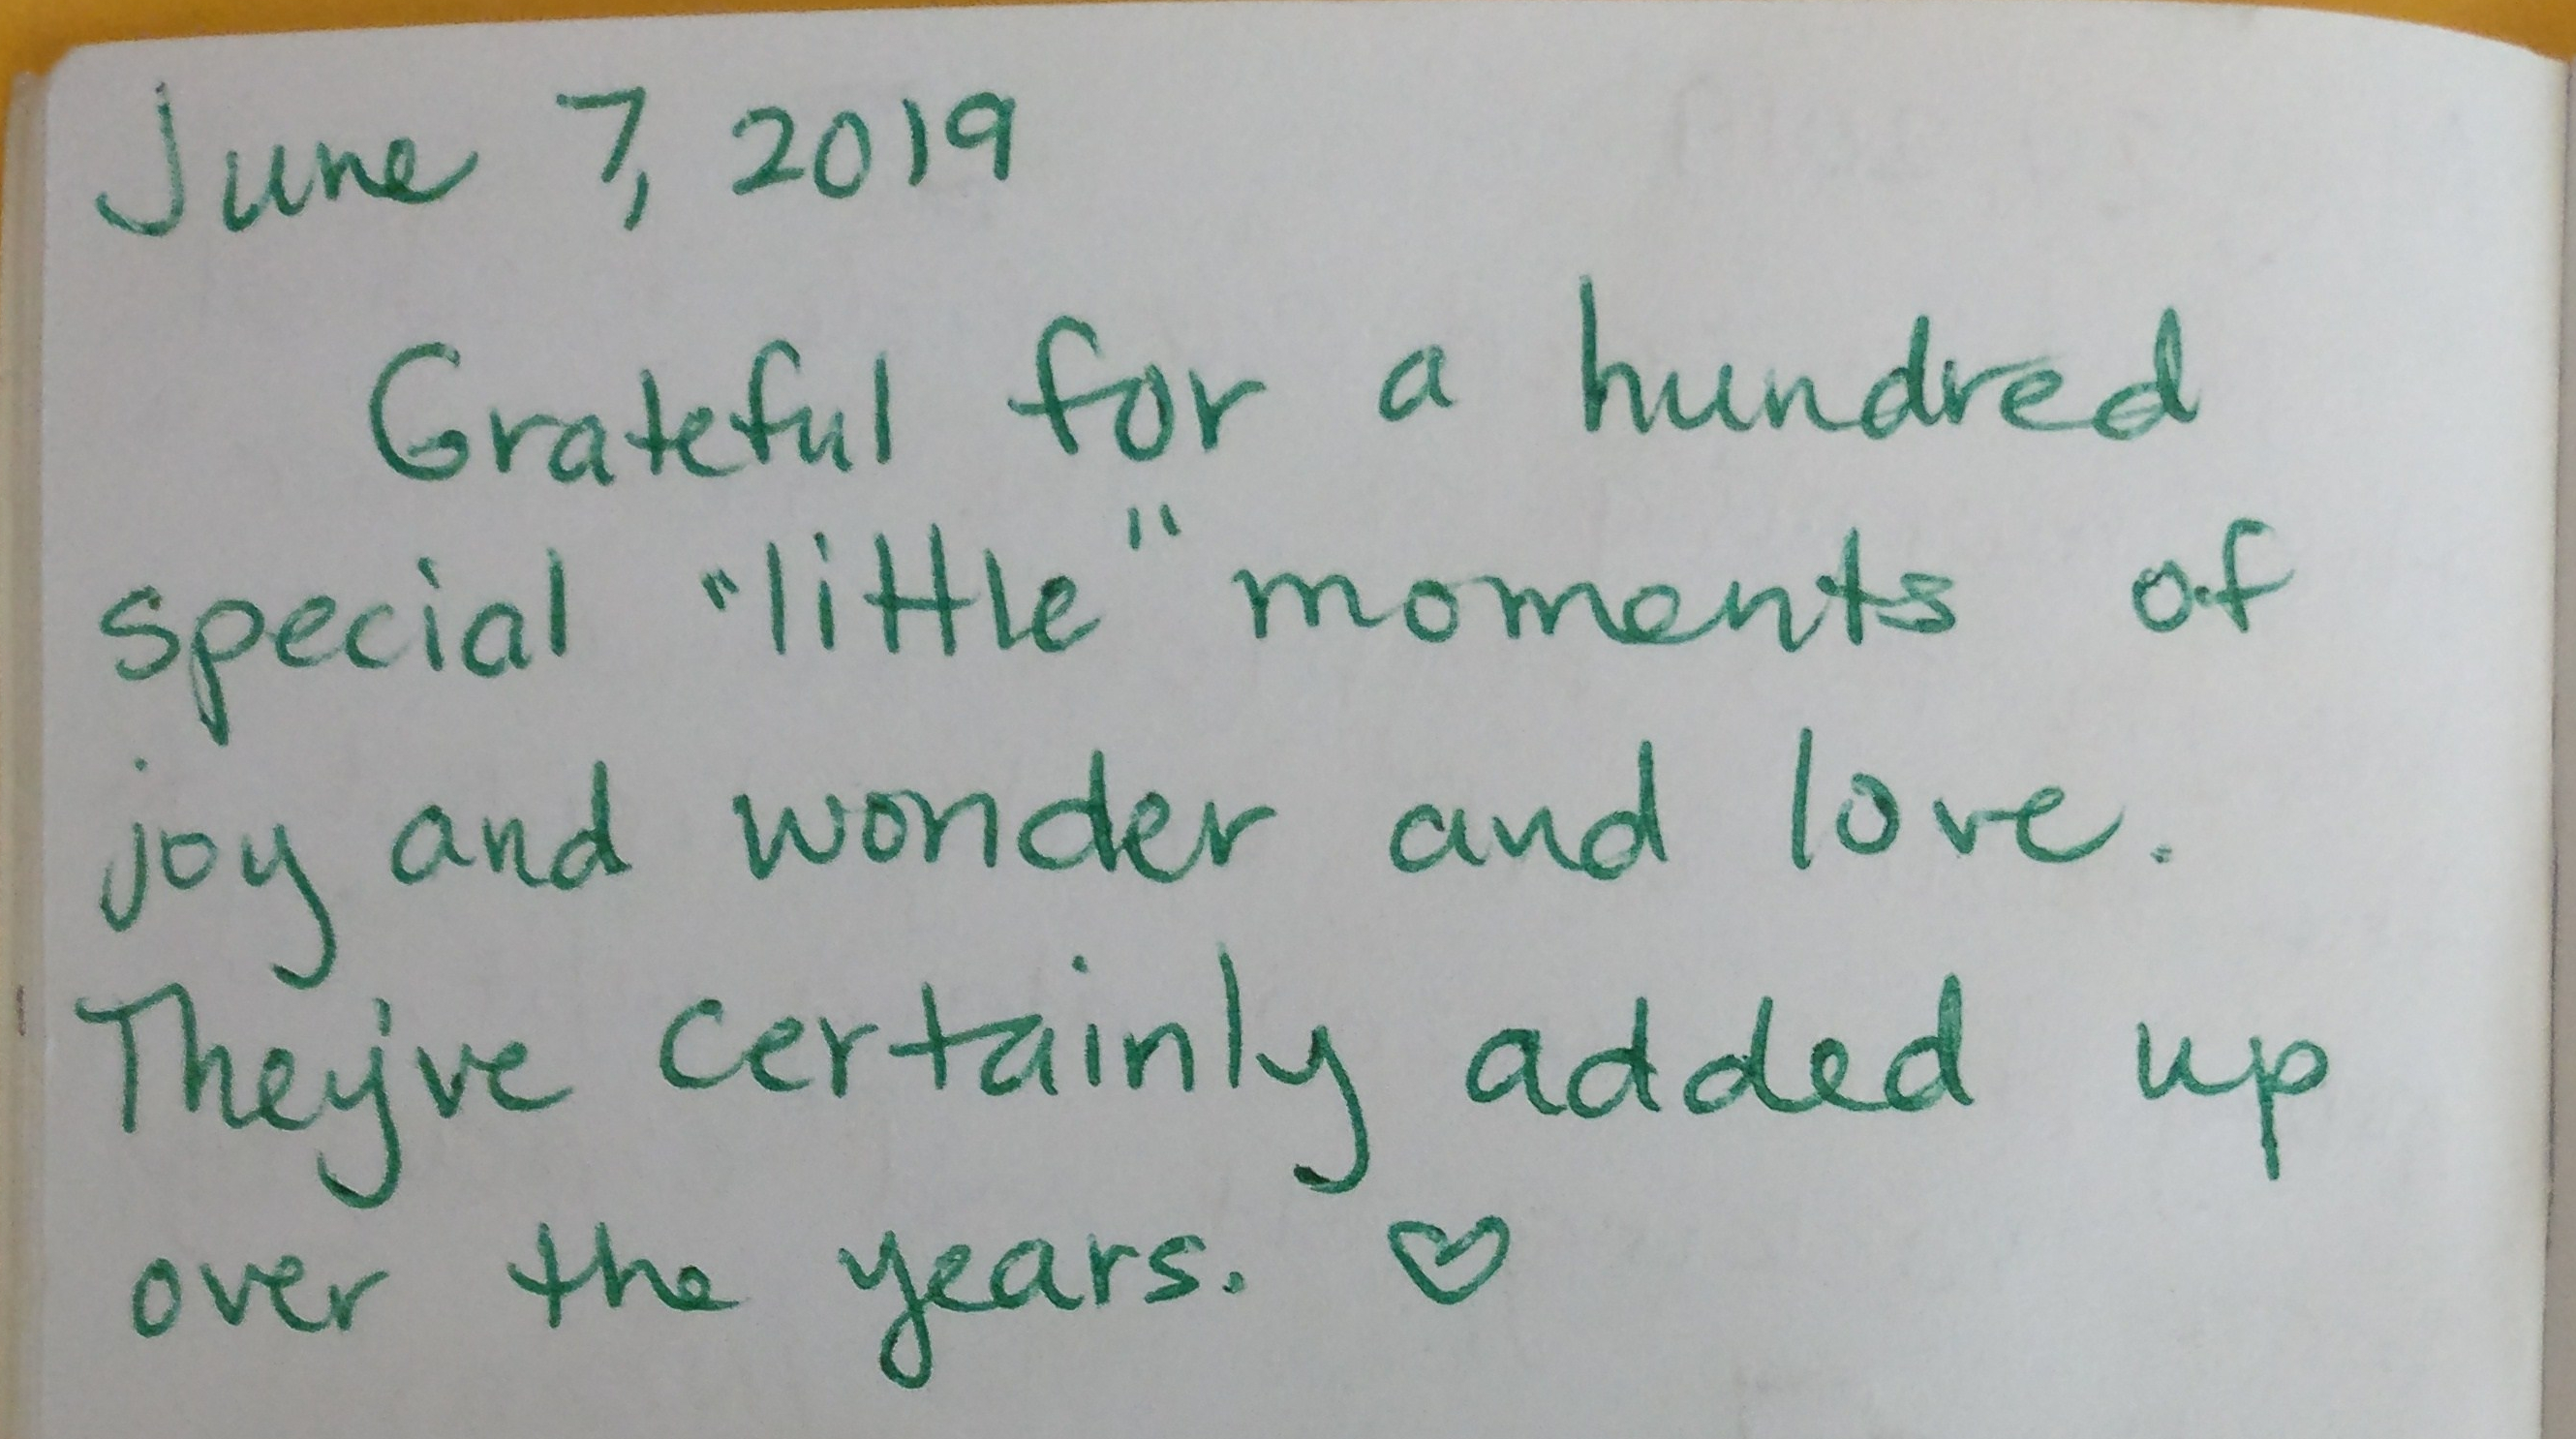 June 7, 2019
Grateful for a hundred
special "little" moments of
joy and wonder and love.
They've certainly added up
over the years. ♡